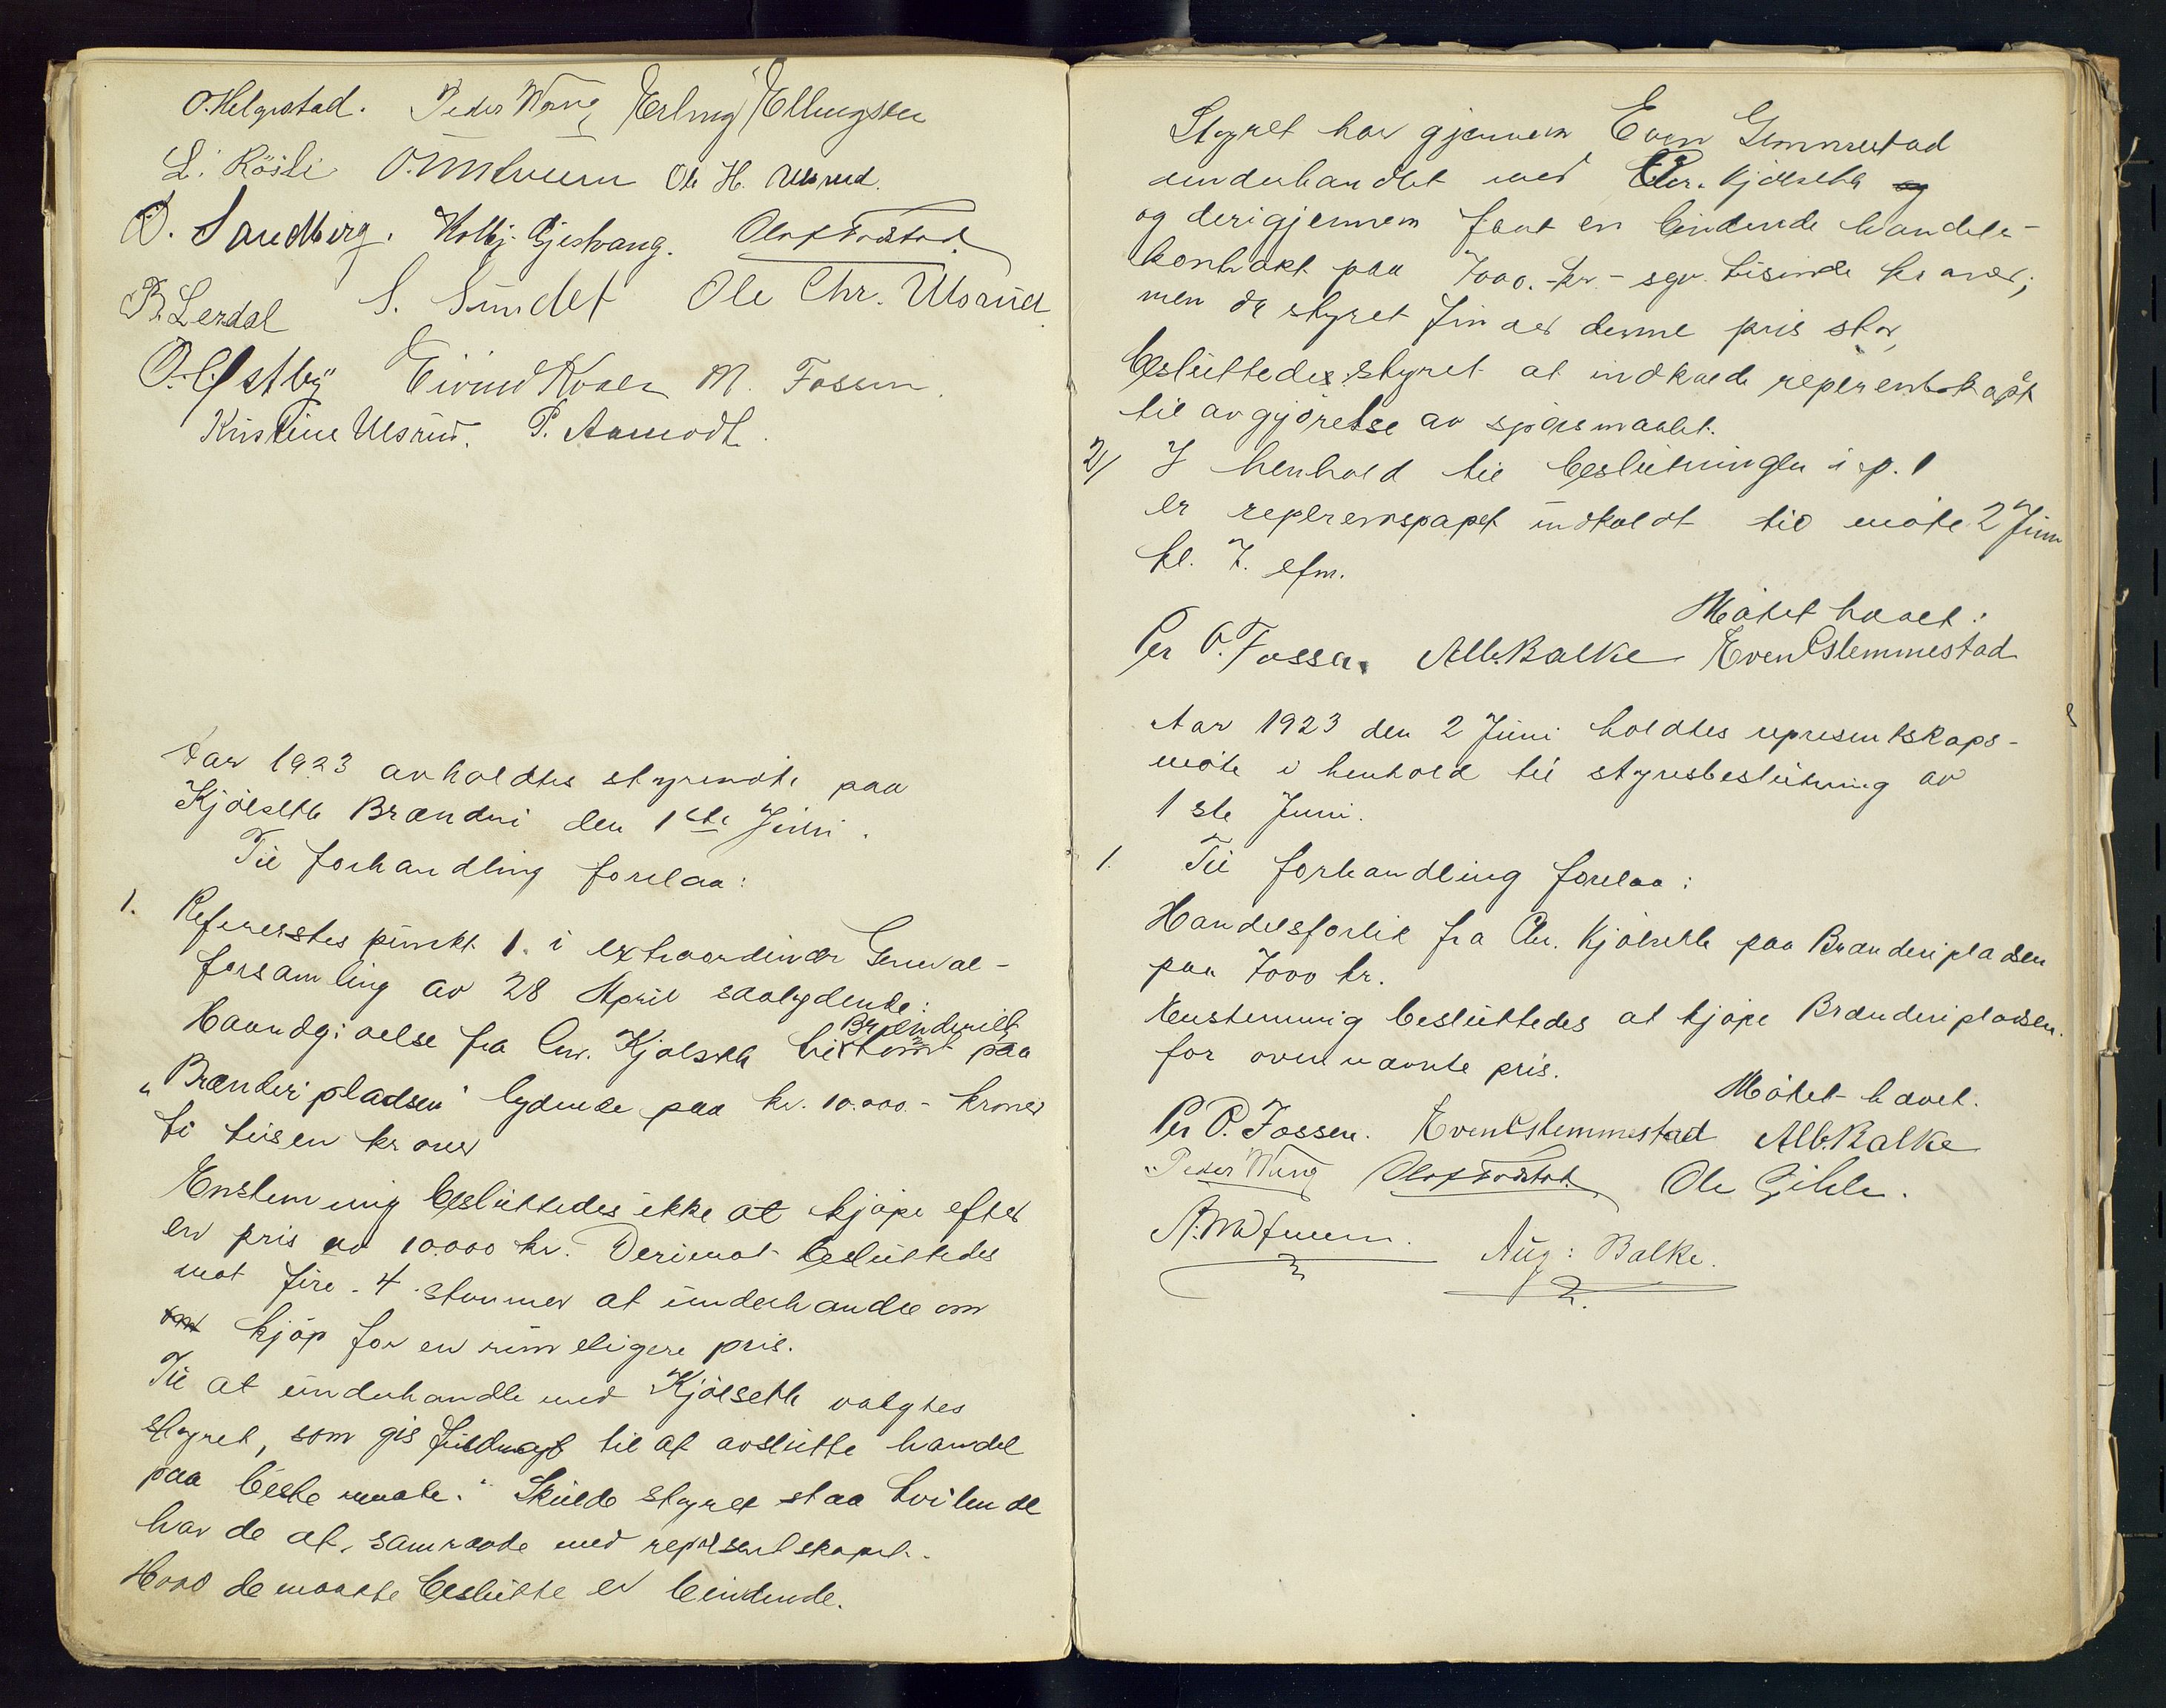 O. Helgestad. Peder Wang Erling Ellingsen
L. Röisli O. Ole H. Ulsrud.
O. Sandberg. Kolbj. Gjestvang. Olaf
B. Lerdal S. Sundet Ole Chr. Ulsrud
O. Østby Eivind M. Fossum.
Kristine Ulsrud. P. Aamodt.
Aar 1923 avholdtes styremöte paa
Kjölseth Brænderi den 1ste Juni.
Til forhandling forelaa:
1. Refererstes punkt 1. i extraordinær General-
forsamling av 28 April saalydende:
Haandgivelse fra Chr. Kjölseth Brænderiets
tomt paa
"Brænderipladsen" lydende paa kr. 10.000.- kroner
ti tusen kroner
Enstemmig besluttedes ikke at kjöpe efter
en pris av 10.000 kr. Derimot besluttedes
mot fire - 4 - stemmer at underhandle om
om kjöp for en rimeligere pris.
Til at underhandle med Kjölseth valgtes
styret, som gis fuldmagt til at avslutte handel
paa beste maate." Skulde styret staa tvilende
har de at samraade med representskapet.
Hvad de maatte beslutte er bindende.
Styret har gjennem Even Slemmestad
underhandlet med Chr. Kjölseth og
og derigjennem faat en bindende handels-
kontrakt paa 7000.-kr.- syv tusinde kroner;
men da styret finder denne pris stor,
besluttedes styret at indkalde reprentskapet
til avgjörelse av spörsmaalet.
2/ I henhold til beslutningen i p. 1
er indkaldt til möte 2 Juni
kl. 7. efm.
Mötet hævet:
Per O. Fossen. Alb. Balke Even Slemmestad
Aar 1923 den 2 Juni holdtes representskaps-
möte i henhold til styresbeslutning av
1ste Juni.
1. Til forhandling forelaa:
Handelsforlik fra Chr. Kjölseth paa Brænderipladsen
paa 7000 kr.
Enstemmig besluttedes at kjöpe Brænderipladsen.
for ovennævnte pris.
Mötet hævet.
Per O. Fossen. Even Slemmestad Alb. Balke
Peder Wang Olaf Ole Gihle.
Aug: Balke.